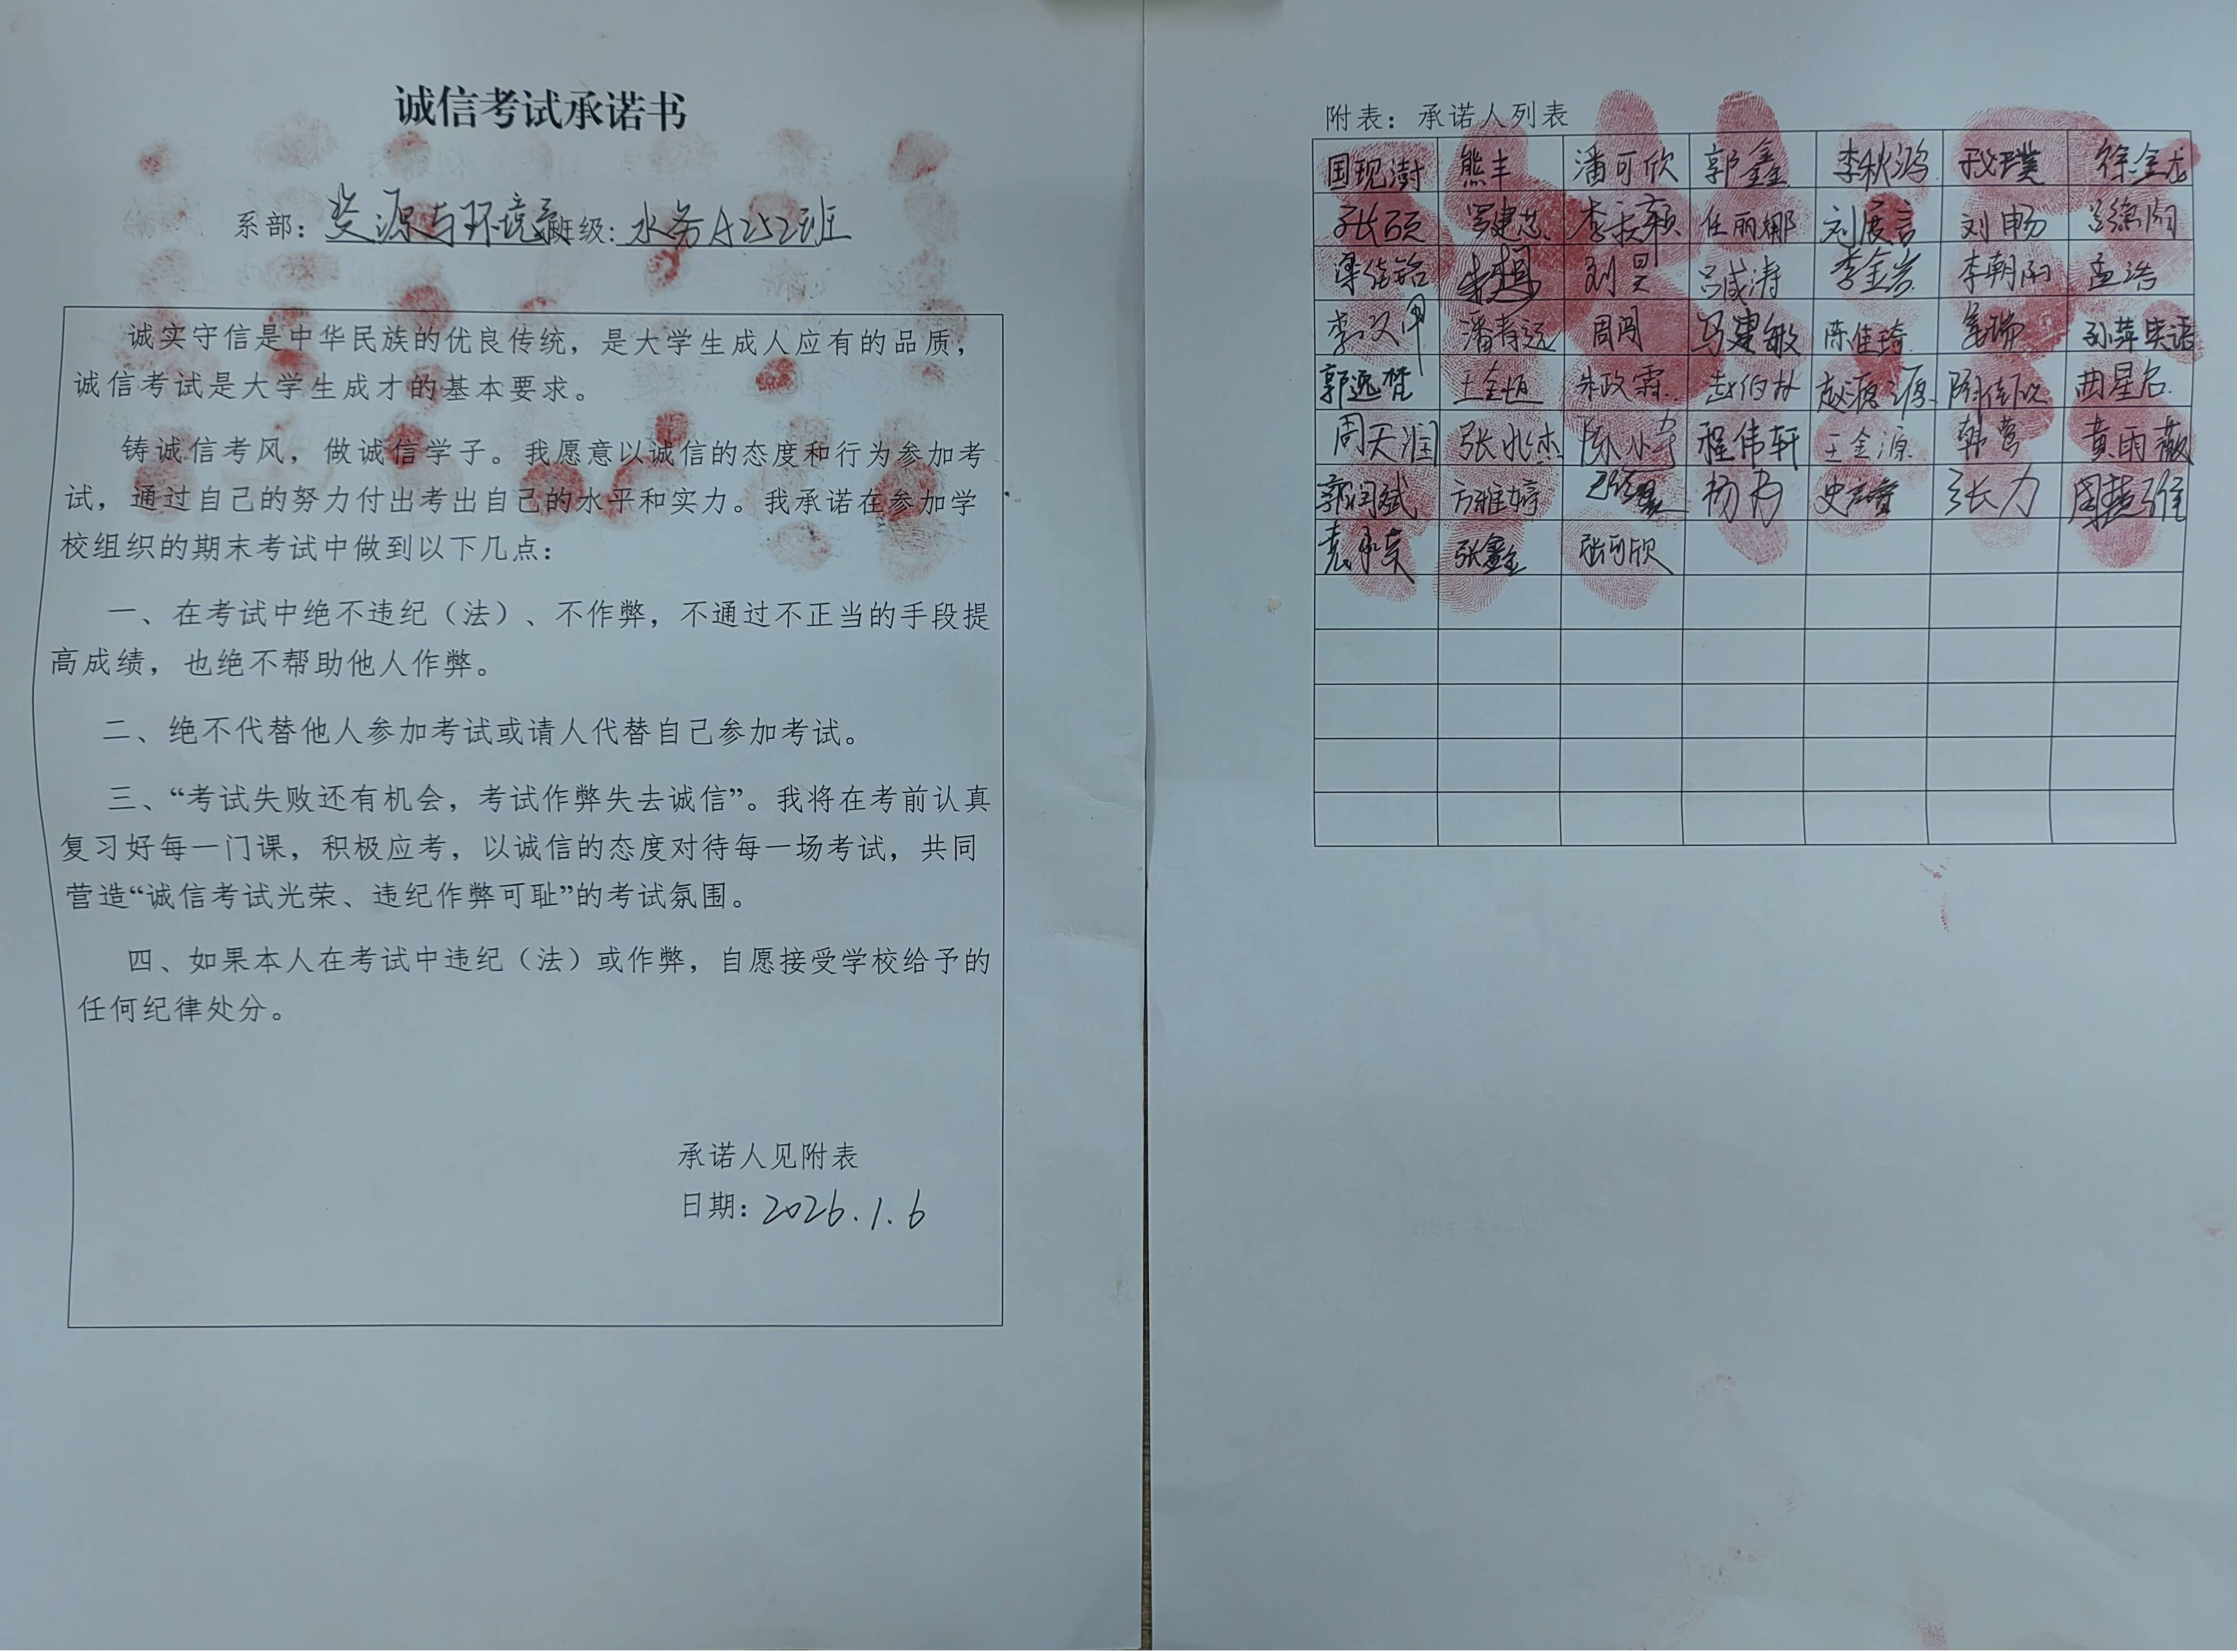 诚信考试承诺书
系部：资源与环境系班级：水务A252班
诚实守信是中华民族的优良传统，是大学生成人应有的品质，
诚信考试是大学生成才的基本要求。
铸诚信考风，做诚信学子。我愿意以诚信的态度和行为参加考
试，通过自己的努力付出考出自己的水平和实力。我承诺在参加学
校组织的期末考试中做到以下几点：
一、在考试中绝不违纪（法）、不作弊，不通过不正当的手段提
高成绩，也绝不帮助他人作弊。
二、绝不代替他人参加考试或请人代替自己参加考试。
三、“考试失败还有机会，考试作弊失去诚信”。我将在考前认真
复习好每一门课，积极应考，以诚信的态度对待每一场考试，共同
营造“诚信考试光荣、违纪作弊可耻”的考试氛围。
四、如果本人在考试中违纪（法）或作弊，自愿接受学校给予的
任何纪律处分。
承诺人见附表
日期：2026.1.6
附表：承诺人列表
国现澍 熊丰 潘可欣 郭鑫 李秋鸿 徐金龙
张硕 任丽娜 刘展言 刘畅
刘昊 吕咸涛 李金岩 李朝阳 孟浩
李汶开 潘春远 周闯 马建敏 陈佳琦 姜瑞
郭逸梵 王金恒 朱政霖 赵伯林 赵源源 曲星名
周天润 张兆杰 程伟轩 王金源 韩莺 黄雨薇
郭闰斌 方雅婷 张力
张鑫 张可欣